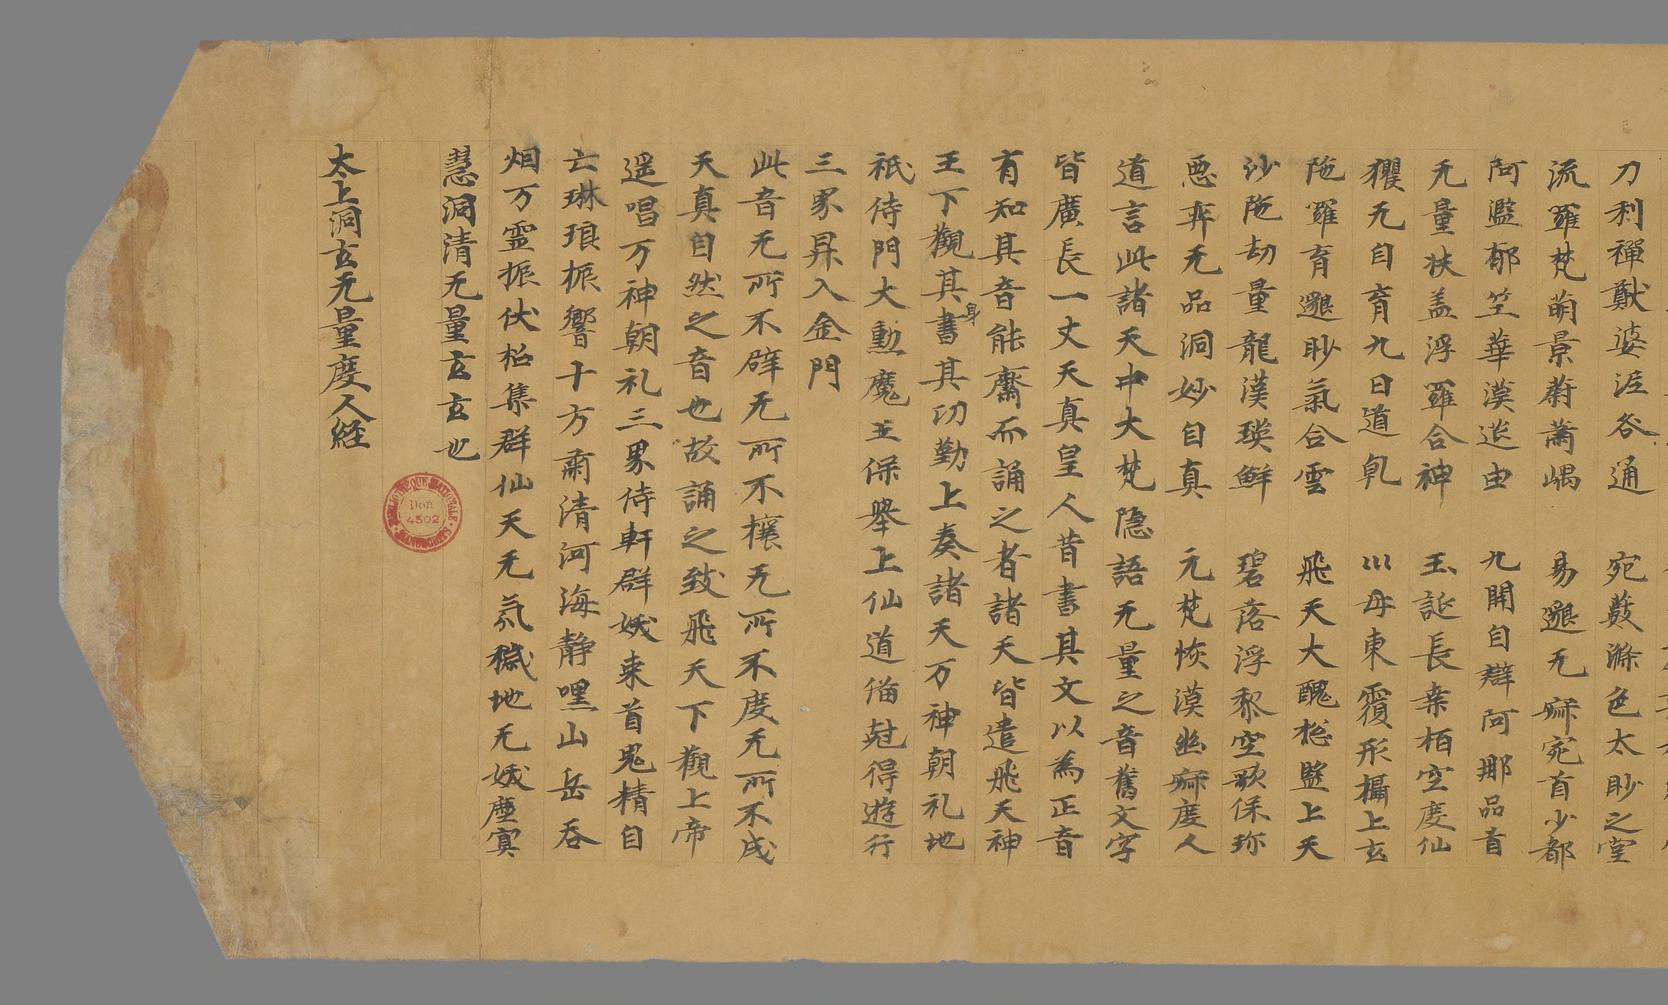 刀利禪猷婆泥咨通　宛薮滌色太眇之堂
流羅梵萌景蔚蕭嵎　易邈无寂宛首少都
阿濫郁竺華漠迯由　九開自辯阿那品首
无量扶盖浮羅合神　玉誕長桒栢空度仙
玃无自育九日道乹　巛母東覆形攝上玄
陁羅育邈眇氣合雲　飛天大醜捴監上天
沙陁劫量龍漢瑛鮮　碧落浮黎空歌保珎
悪弈无品洞妙自真　元梵恢漠幽寂度人
道言此諸天中大梵隐語无量之音舊文字
皆廣長一丈天真皇人昔書其文以為正音
有知其音能齋而誦之者諸天皆遣飛天神
王下觀其身書其功勤上奏諸天万神朝礼地
祇侍門大勳魔王保舉上仙道俻尅得遊行
三界昇入金門
此音无所不辟无所不禳无所不度无所不成
天真自然之音也故誦之致飛天下觀上帝
遥唱万神朝礼三界侍軒群妖束首鬼精自
亡琳琅振響十方肅清河海静嘿山岳吞
烟万霊振伏招集群仙天无氛穢地无妖塵冥
慧洞清无量玄玄也
太上洞玄无量度人経
BIBLIOTHÈQUE NATIONALE
Don
4502
MANUSCRITS